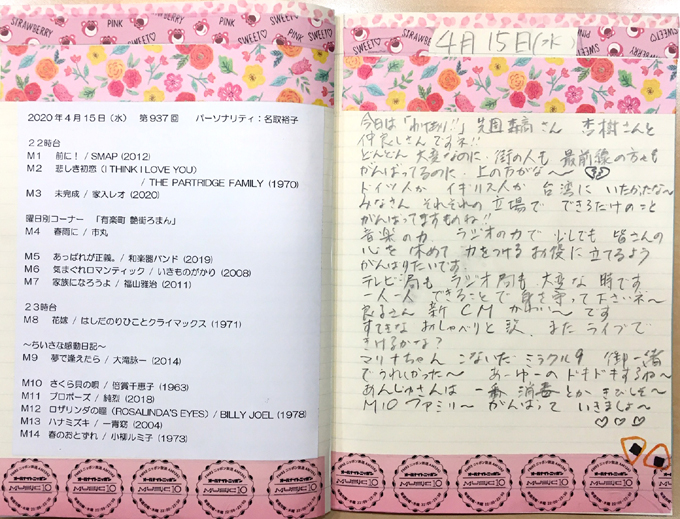 STRAWBERRY
PINK
SWEET♡
2020年4月15日(水) 第937回 パーソナリティ:名取裕子
22時台
M1 前に! / SMAP (2012)
M2 悲しき初恋 (I THINK I LOVE YOU)
/ THE PARTRIDGE FAMILY (1970)
M3 未完成 / 家入レオ (2020)
曜日別コーナー 「有楽町 艶街ろまん」
M4 春雨に / 市丸
M5 あっぱれが正義。/ 和楽器バンド (2019)
M6 気まぐれロマンティック / いきものがかり (2008)
M7 家族になろうよ / 福山雅治 (2011)
23時台
M8 花嫁 / はしだのりひことクライマックス (1971)
~ちいさな感動日記~
M9 夢で逢えたら / 大滝詠一 (2014)
M10 さくら貝の唄 / 倍賞千恵子 (1963)
M11 プロポーズ / 純烈 (2018)
M12 ロザリンダの瞳 (ROSALINDA'S EYES) / BILLY JOEL (1978)
M13 ハナミズキ / 一青窈 (2004)
M14 春のおとずれ / 小柳ルミ子 (1973)
オールナイトニッポン
MUSIC10
4月15日(水)
今日は「 」 さん 杏樹さんと
仲良しさんです!!
どんどん 大変なのに 街の人も 最前線の方々も
がんばってるのに 上の方がな~
ドイツ人か イギリス人か 台湾に いたかったな~
みなさん それぞれの 立場で できるだけのこと
がんばってますものね!!
音楽の力 ラジオの力で 少しでも 皆さんの
心を 休めて 力をつける お役に立てるよう
がんばりたいです
テレビ局も ラジオ局も 大変な 時です
一人一人 できることで 身を守って下さいネ~
良子さん 新 CM かわい~ です
すてきな おしゃべりと 歌、また ライブで
きけるかな?
マリナちゃん こないだ ミラクル9 御一緒
でうれしかった~ あーゆーの ドキドキするね~
あんじゅさんは 一番 消毒とか きびしそ~
M10 ファミリ~ がんばって いきましょ~
♡♡♡